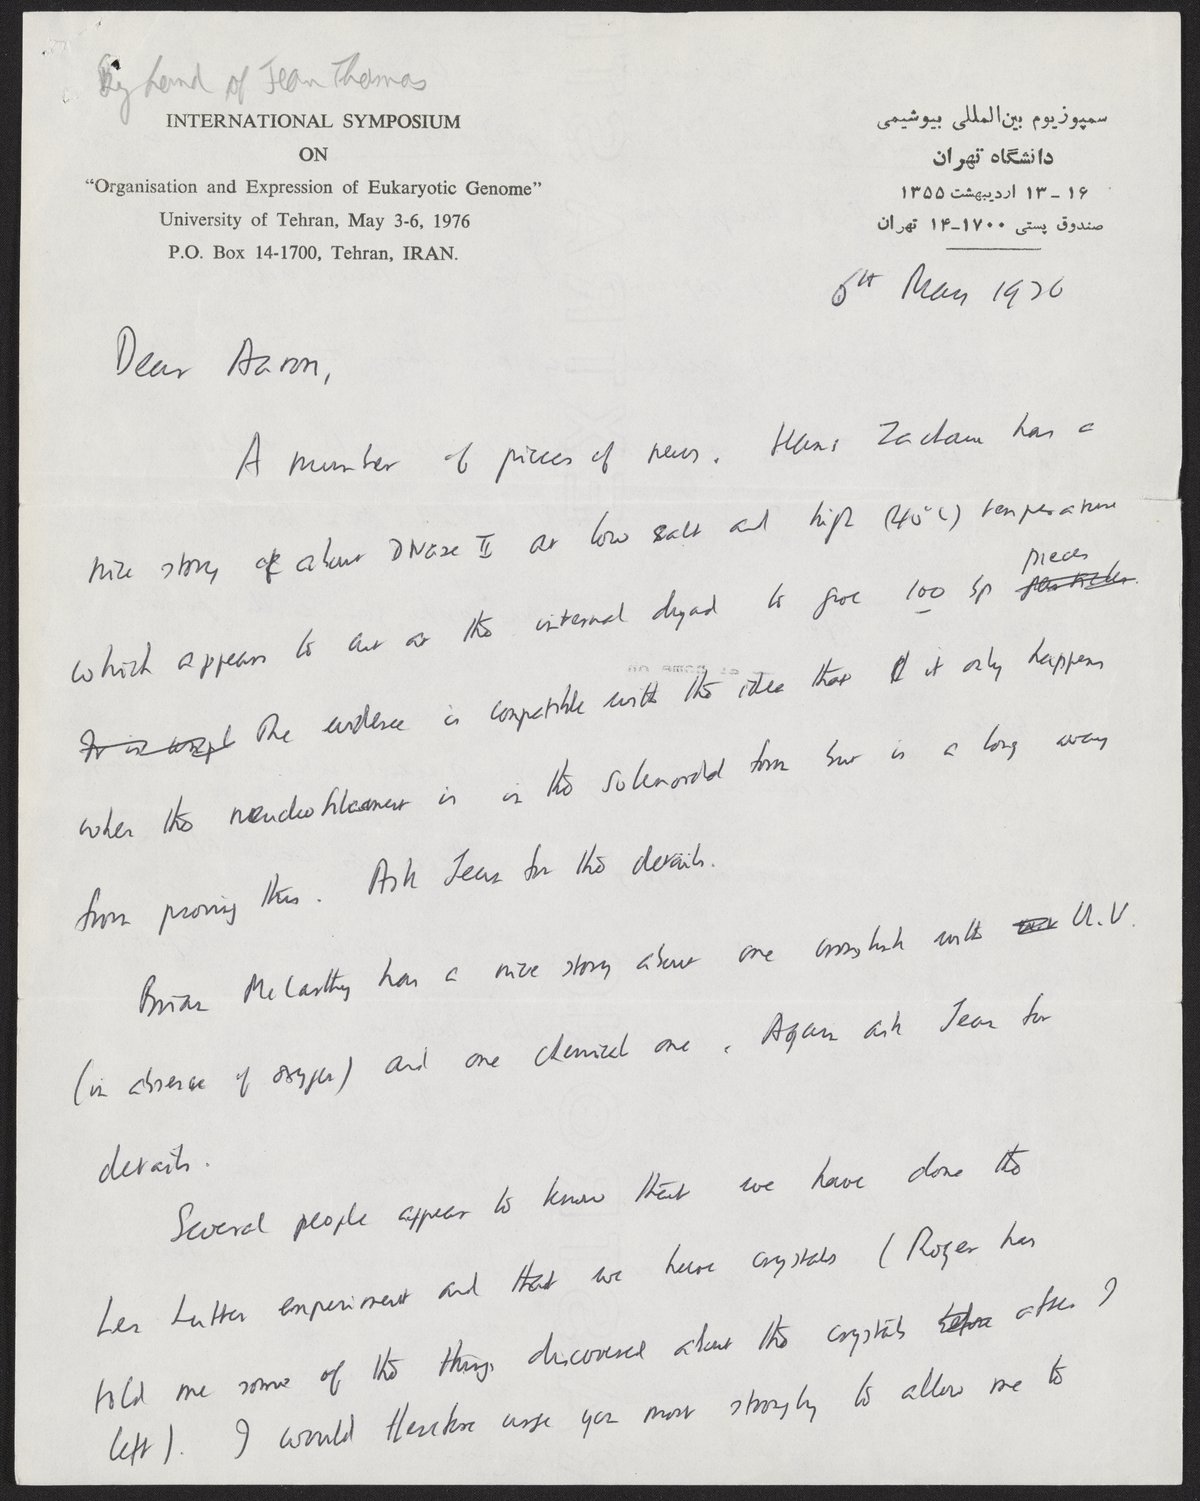 By hand of Jean Thomas
INTERNATIONAL SYMPOSIUM
ON
“Organisation and Expression of Eukaryotic Genome”
University of Tehran, May 3-6, 1976
P.O. Box 14-1700, Tehran, IRAN.
سمپوزیوم بین‌المللی بیوشیمی
دانشگاه تهران
۱۶ – ۱۳ اردیبهشت ۱۳۵۵
صندوق پستی ۱۷۰۰–۱۴ تهران
6th May 1976
Dear Aaron,
A number of pieces of news. Hans Zachau has a
nice story about DNase II at low salt and high (45°C) temperature
pieces
which appears to cut at the internal dyad to give 100 bp particles.
It is The evidence is compatible with the idea that it only happens
when the nucleofilament is in the solenoidal form but is a long way
from proving this. Ask Jean for the details.
Brian McCarthy has a nice story about one crosslink with U.V.
(in absence of oxygen) and one chemical one. Again ask Jean for
details.
Several people appear to know that we have done the
Len Lutter experiment and that we have crystals (Roger has
told me some of the things discovered about the crystals before after I
left). I would therefore urge you most strongly to allow me to